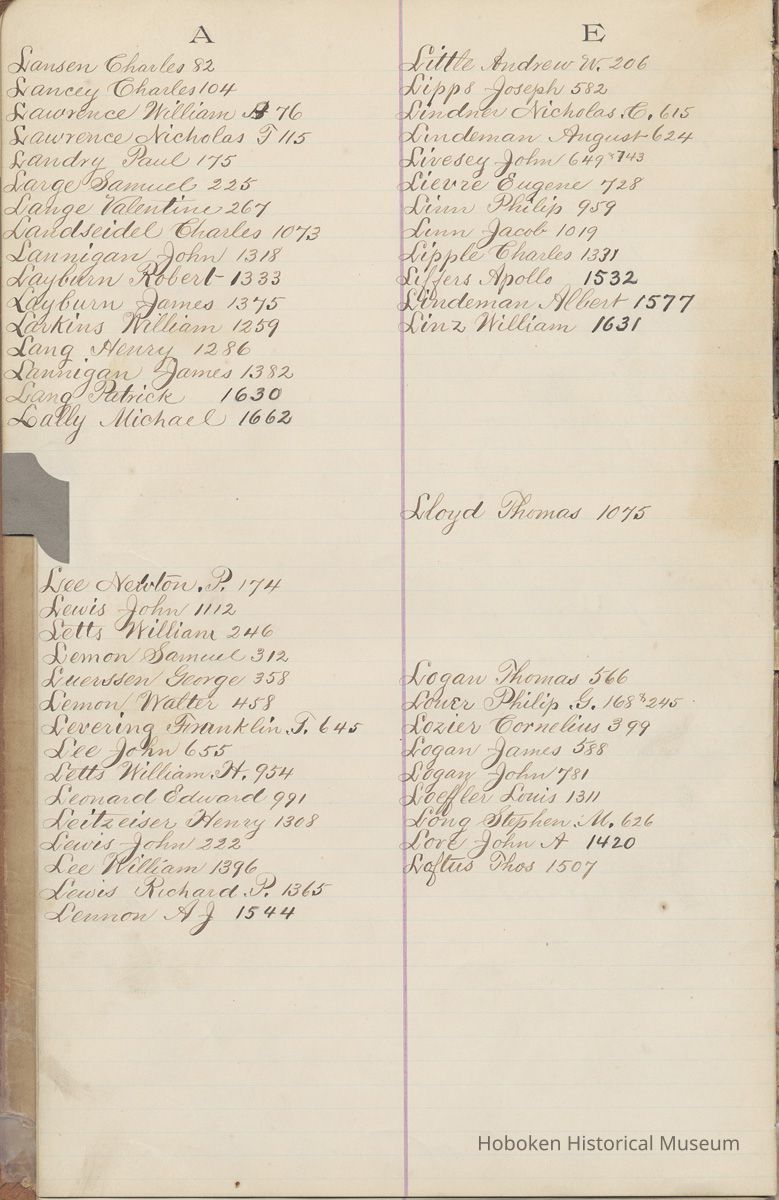 A
Lansen Charles 82
Lancey Charles 104
Lawrence William A 76
Lawrence Nicholas T 115
Landry Paul 175
Large Samuel 225
Lange Valentine 267
Landseidel Charles 1073
Lannigan John 1318
Layburn Robert 1333
Layburn James 1375
Larkins William 1259
Lang Henry 1286
Lannigan James 1382
Lang Patrick 1630
Lally Michael 1662
Lee Newton. P. 174
Lewis John 1112
Letts William 246
Lemon Samuel 312
Luerssen George 358
Lemon Walter 458
Levering Franklin. T. 645
Lee John 655
Letts William. H. 954
Leonard Edward 991
Leitzeiser Henry 1308
Lewis John 222
Lee William 1396
Lewis Richard. P. 1365
Lennon A J 1544
E
Little Andrew W. 206
Lipps Joseph 582
Lindner Nicholas. C. 615
Lindeman August 624
Livesey John 649 & 743
Lievre Eugene 728
Linn Philip 959
Linn Jacob 1019
Lipple Charles 1331
Liffers Apollo 1532
Lindeman Albert 1577
Linz William 1631
Lloyd Thomas 1075
Logan Thomas 566
Lower Philip. G. 168 & 245
Lozier Cornelius 399
Logan James 588
Logan John 781
Loeffler Louis 1311
Long Stephen. M. 626
Love John A 1420
Loftus Thos 1507
Hoboken Historical Museum